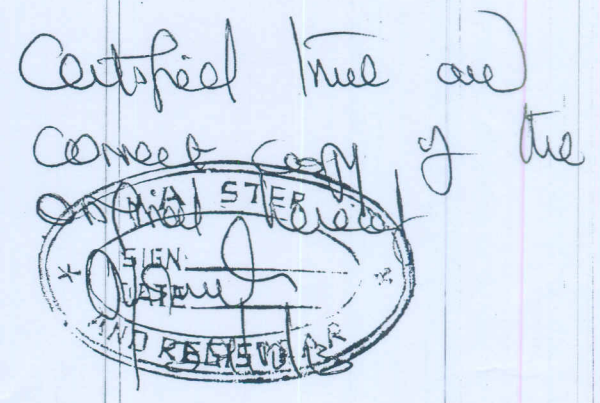 Certified True and
correct copy of the
original hereof
MASTER
SIGN:
DATE
AND REGISTRAR